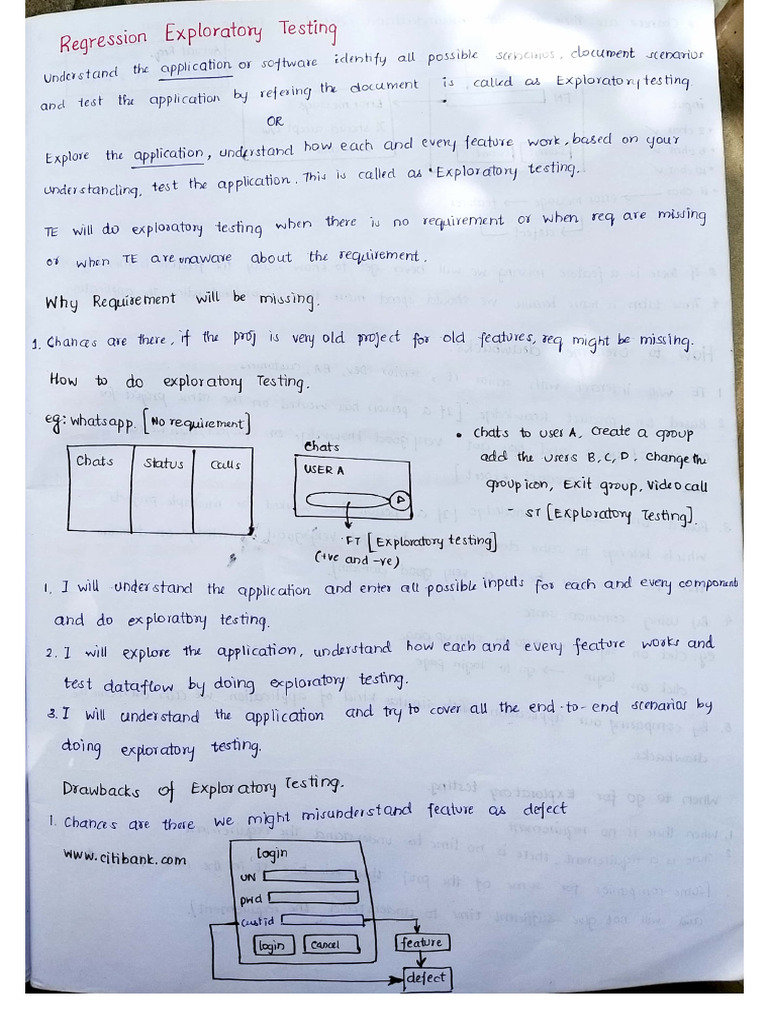 Regression Exploratory Testing
Understand the application or software identify all possible scenarios, document scenarios
and test the application by refering the document is called as Exploratory testing.
OR
Explore the application, understand how each and every feature work, based on your
understanding, test the application. This is called as Exploratory testing.
TE will do exploratory testing when there is no requirement or when req are missing
or when TE are unaware about the requirement.
Why Requirement will be missing.
1. Chances are there, if the proj is very old project for old features, req might be missing.
How to do exploratory Testing.
eg: whatsapp. [No requirement]
Chats Status Calls
Chats
USER A
FT [Exploratory testing]
(+ve and -ve)
• Chats to user A, Create a group
add the users B, C, D, Change the
group icon, Exit group, Video call
- ST [Exploratory Testing].
1. I will understand the application and enter all possible inputs for each and every component
and do exploratory testing.
2. I will explore the application, understand how each and every feature works and
test dataflow by doing exploratory testing.
3. I will understand the application and try to cover all the end-to-end scenarios by
doing exploratory testing.
Drawbacks of Exploratory Testing.
1. Chances are there we might misunderstand feature as defect
www.citibank.com
Login
UN
pwd
custid
login Cancel
feature
defect